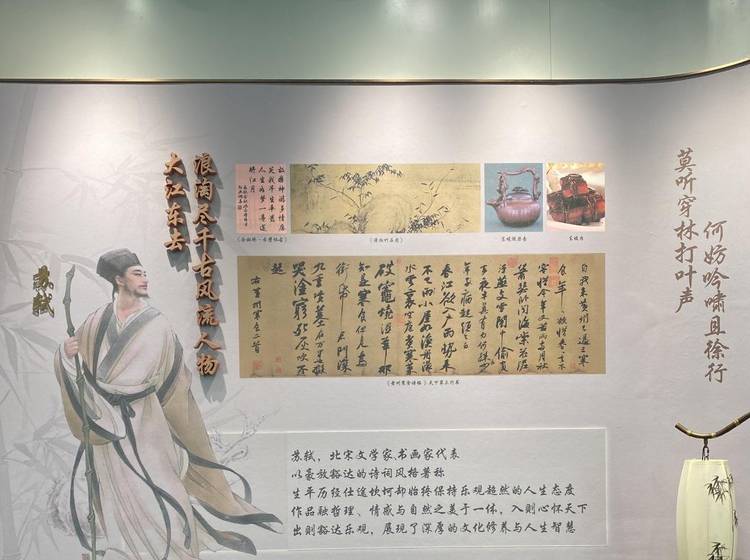 大江东去
浪淘尽千古风流人物
苏轼
故国神游多情应
笑我早生华发
人生如梦一尊还
酹江月
《念奴娇·赤壁怀古》
《潇湘竹石图》
东坡提梁壶
东坡肉
自我来黄州已过三寒
食年年欲惜春春去不
容惜今年又苦雨两月秋
萧瑟卧闻海棠花泥
污燕支雪闇中偷负
去夜半真有力何殊少
年子病起头已白
春江欲入户雨势来
不已雨小屋如渔舟濛濛
水云里空庖煮寒菜
破竈烧湿苇那
知是寒食但见乌
衔纸君门深
九重坟墓在万里也拟
哭涂穷死灰吹不
起
右黄州寒食二首
《黄州寒食诗帖》天下第三行书
莫听穿林打叶声
何妨吟啸且徐行
苏轼，北宋文学家、书画家代表
以豪放豁达的诗词风格著称
生平历经仕途坎坷却始终保持乐观超然的人生态度
作品融哲理、情感与自然之美于一体，入则心怀天下
出则豁达乐观，展现了深厚的文化修养与人生智慧